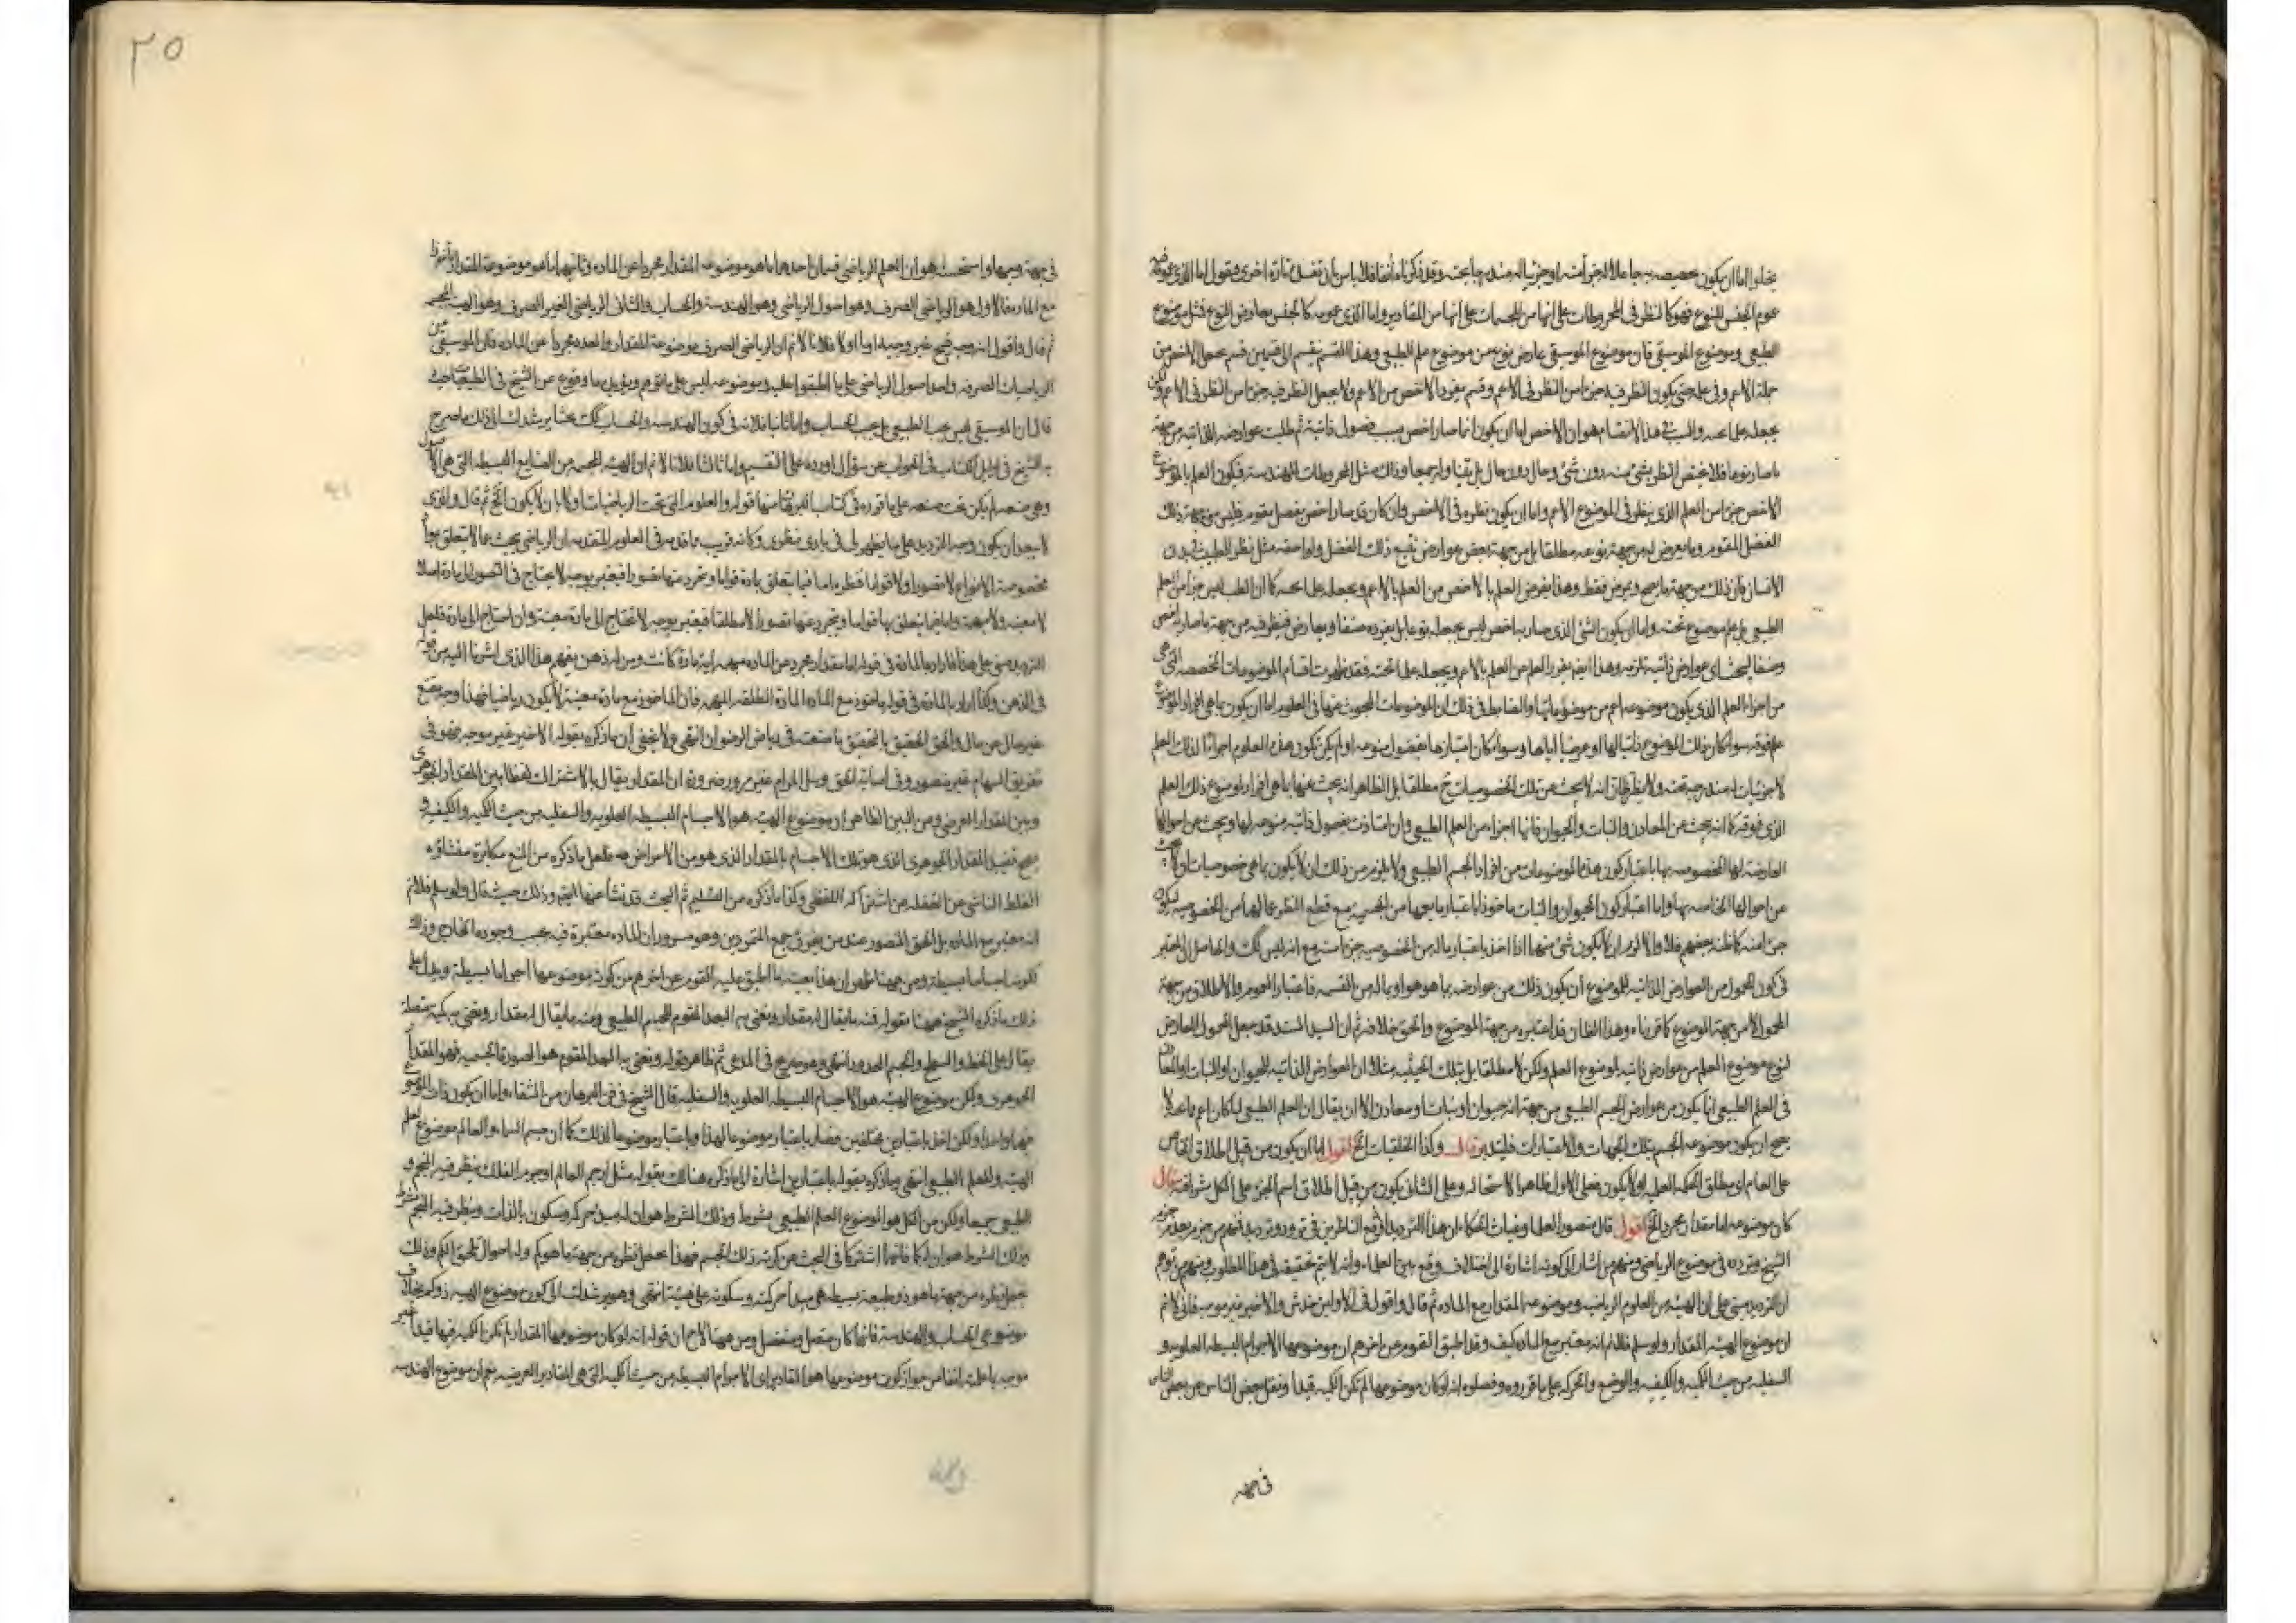 يخلوا اما ان يكون تخصيصه به جاعلا له جزء آمنه او جزئيا له مندرجا تحته وقد ذكرناه آنفا فلا باس بان نفصل تارة اخرى ونقول اما الذى عمومه
عموم الجنس للنوع فهو كالنظر فى المخروطات على انها من المجسمات على انها من المقادير واما الذى عمومه كالجنس بعارض النوع فمثل موضوع
الطبيعى وموضوع الموسيقى فان موضوع الموسيقى عارض نوع من موضوع علم الطبيعى وهذا القسم ينقسم الى قسمين قسم يجعل الاخص من
جملة الاعم وفى علمه حتى يكون النظر فيه جزءا من النظر فى الاعم وقسم يفرد الاخص من الاعم ولا يجعل النظر فيه جزءا من النظر فى الاعم ولكن
يجعله علما تحته والسبب فى هذا الانقسام هو ان الاخص اما ان يكون انما صار اخص بسبب فصول ذاتية ثم طلبت عوارضه الذاتية من جهة
ما صار نوعا فلا يختص النظر بشئ منه دون شئ وحال دون حال بل يتناوله جميعا وذلك مثل المخروطات للهندسة فيكون العلم بالموضوع
الاخص جزءا من العلم الذى ينظر فى الموضوع الاعم واما ان يكون نظره فى الاخص وان كان قد صار اخص بفصل مقوم فليس من جهة ذلك
الفصل المقوم وما يعرض له من جهة نوعه مطلقا بل من جهة بعض عوارض تتبع ذلك الفصل ولواحقه مثل نظر الطبيب فى بدن
الانسان فان ذلك من جهة ما يصح ويمرض فقط وهذا يفرض العلم بالاخص من العلم بالاعم ويجعله علما تحته كما ان الطب ليس جزءا من العلم
الطبيعى بل علم موضوع تحته واما ان يكون الشئ الذى صار به اخص ليس يجعله نوعا بل يفرده صنفا وبعارض فينظر فيه من جهة ما صار اخص
وصنفا ليبحث اى عوارض ذاتية تلزمه وهذا ايضا يفرد العلم من العلم بالاعم ويجعله علما تحته فقد ظهرت اقسام الموضوعات المخصصه التى هى
من اجزاء العلم الذى يكون موضوعه اعم من موضوعاتها والضابط فى ذلك ان الموضوعات المبحوث عنها فى العلوم اما ان يكون بما هى افراد لموضوع
علم فوقه سواء كان ذلك الموضوع ذاتيا لها او عرضيا اياها وسواء كان امتيازها بفصول منوعه او لم يكن تكون هذه العلوم اجزاءا لذلك العلم
لا جزئيات له مندرجة تحته ولا يظن انه لا يبحث عن تلك الخصوصيات ح مطلقا بل الظاهر انه يبحث عنها بما هى افراد لموضوع ذلك العلم
الذى فوقه كما انه يبحث عن المعادن والنبات والحيوان فانها اجزاء من العلم الطبيعى وان امتازت بفصول ذاتيه منوعه لها ويبحث عن احوالها
العارضه لها المخصوصه بها باعتبار كون هذه الموضوعات من افراد الجسم الطبيعى ولا يلزم من ذلك ان لا يكون بما هى خصوصيات اولا يبحث
عن احوالها الخاصه بها واما اعتبار كون الحيوان والنبات ماخوذا باعتبار ما يعمها من الجسم مع قطع النظر عما لها من الخصوصيه ليكون
جزءا منه كما ظنه بعضهم فلا والا لزم ان لا يكون شئ منها اذا اخذ باعتبار ماله من الخصوصيه جزءا منه مع انه ليس كك والحاصل ان المعتبر
فى كون المحمول من العوارض الذاتية للموضوع ان يكون ذلك من عوارضه بما هو هو او بما له من القسمه فاعتبار العموم والاطلاق من جهة
المحمول لا من جهة الموضوع كما قررناه وهذا الظان قد اعتبره من جهة الموضوع والحق خلافه ثم ان السيد السند قد جعل المحمول العارض
لنوع موضوع العلم من عوارض ذاتيه لموضوع العلم ولكن لا مطلقا بل بتلك الحيثيه مثلا ان العوارض الذاتية للحيوان او النبات او المعادن
فى العلم الطبيعى انما يكون من عوارض الجسم الطبيعى من جهة انه حيوان او نبات او معادن الا ان يقال ان العلم الطبيعى لما كان اعم ما عدلا
يصح ان يكون موضوعه الجسم بتلك الجهات والاعتبارات فليتدبر قال وكذا الخلقيات الخ اقول اما ان يكون من قبيل اطلاق الخاص
على العام اى مطلق الحكمة العمليه اولا يكون فعلى الاول ظاهر الاستحاله وعلى الثانى يكون من قبيل اطلاق اسم الجزء على الكل شرافة قال
كان موضوعه اما مقدار مجرد الخ اقول قال منصور العلماء وغياث الحكماء ان هذا الترديد اوقع الناظرين فى تردد وترديد فمنهم من جزم بعدم جزم
الشيخ وتردده فى موضوع الرياضى ومنهم من اشار الى كونه اشارة الى اختلاف وقع بين العلماء وانه لا يتم تحقيقه فى هذا المطلوب ومنهم من توهم
ان الترديد مبنى على ان الهيئه من العلوم الرياضيه وموضوعه المقدار مع المادة ثم قال واقول فى الاولين خدش والاخير غير موجه فانى لا نم
ان موضوع الهيئه المقدار ولو سلم فلا نم انه معتبر مع المادة كيف وقد اطبق القوم عن اخرهم ان موضوعها الاجرام البسيطه العلويه و
السفليه من حيث الكميه والكيفيه والوضع والحركه على ما قرروه وفصلوه انه لو كان موضوعها لم تكن الكميه قيدا ونقل بعض الناس عن بعض الناس
فى جهه
٢٥
فى جهة وجيها واستحسنه هو ان العلم الرياضى قسمان احدهما ما هو موضوعه المقدار مجردا عن الماده وثانيهما ما هو موضوعه المقدار ماخوذا
مع الماده فالاول هو الرياضى الصرف وهو اصول الرياضى وهو الهندسة والحساب والثانى الرياضى الغير الصرف وهو الهيئة المجسمه
ثم قال واقول انه وجه قبيح غير وجيه اما اولا فلانا لا نم ان الرياضى الصرف موضوعه المقدار والعدد مجردا عن الماده فان الموسيقى من
الرياضيات الصرفه واحد اصول الرياضى على ما اطبقوا عليه وموضوعه ليس على ما توهم ويؤيده ما وقع عن الشيخ فى الطبيعيات حيث
قال ان الموسيقى ليس بحسب الطبيعى بل بحسب الحساب واما ثانيا فلانه فى كون الهندسه والحساب كك بحثا يرشدك الى ذلك ما صرح
به الشيخ فى اوايل الكتاب فى الجواب عن سؤال اورده على التقسيم واما ثالثا فلانا لا نم ان الهيئة المجسمه من الصنايع البسيطه التى هى الاصول
وهى منعه لم يكن تحت منعه على ما قرره فى كتاب البرهان منها قوله والعلوم التى تحت الرياضيات اولى بان لا يكون الخ ثم قال والذى
لا يبعد ان يكون وجه الترديد على ما يظهر لى فى بادى نظرى وكانه قريب ما قدمه فى العلوم المتقدمه ان الرياضى يبحث عما لا يتعلق بمواد
مخصوصة الانواع لا تصورا ولا قواما فنظره اما فيما يتعلق بمادة قواما ويتجرد عنها تصورا فيعتبر بوجه لا يحتاج فى التصور الى مادة اصلا
لا معينه ولا مبهمة واما فيما يتعلق بها قواما ويتجرد عنها تصورا لا مطلقا فيعتبر بوجه لا يحتاج الى مادة معينه وان احتاج الى مادة فلعل
الترديد مبنى على هذا فاراد بالمادة فى قوله اما مقدار مجرد عن الماده مبهمه اية مادة كانت ومن له ذهن يفهم هذا الذى اشرنا اليه من قوله
فى الذهن وكذا اراد بالمادة فى قوله ماخوذ مع الماده المادة المطلقه المبهمه فان الماخوذ مع مادة معينة لا يكون رياضيا فهذا وجه يصح
غير مال عن مال والحق الحقيق بالتحقيق ما صنعته فى رياض الرضوان انتهى ولا يخفى ان ما ذكره بقوله الاخير غير موجه محفوف فى
تفريق السهام غير منصور وفى اصابة الحق ونيل المرام غير مرور ضرورة ان المقدار يقال بالاشتراك لفظا بين المقدار الجوهرى
وبين المقدار العرضى ومن البين الظاهر ان موضوع الهيئه هو الاجسام البسيطه العلويه والسفليه من حيث الكميه والكيفيه و
يصح تقييد المقدار الجوهرى الذى هو تلك الاجسام بالمقدار الذى هو من الاعراض فلعل ما ذكره من المنع مكابرة منشاؤه
الغلط الناشى من الغفله عن اشتراكه اللفظى وكذا ما ذكره من التسليم ثم البحث قد نشأ عنها ايضا وذلك حيث قال ولو سلم فلا نم
انه معتبر مع الماده بل الحق المنصور عند من يفرق جمع المتمردين وهو مسرور ان الماده معتبرة فيه بحسب وجوده الخارجى وذلك
لكونه اجساما بسيطة ومن ههنا ظهر ان هذا بعينه ما اطبق عليه القوم عن اخرهم من كون موضوعها اجراما بسيطة ويدل على
ذلك ما ذكره الشيخ ههنا بقوله فنه ما يقال له مقدار ويعنى به البعد المقوم للجسم الطبيعى ومنه ما يقال له مقدار ويعنى به كمية متصلة
يقال على الخط والسطح والجسم المحدود انتهى وهو صريح فى المدعى ثم ظاهر قوله ويعنى به البعد المقوم هو الصورة الجسميه فهو المقدار
الجوهرى ولكن موضوع الهيئه هو الاجسام البسيطه العلويه والسفليه قال الشيخ فى فن البرهان من الشفاء واما ان يكون ذات الموضوع
فيهما واحدا ولكن اخذ باعتبارين مختلفين فصار باعتبار موضوعا لهذا وباعتبار موضوعا لذلك كما ان جسم السماء والعالم موضوع لعلم
الهيئه وللعلم الطبيعى انتهى وما ذكره بقوله باعتبارين اشارة الى ما ذكره هنالك بقوله مثل ان جرم العالم او جرم الفلك ينظر فيه المنجم و
الطبيعى جميعا ولكن جرم الكل هو الموضوع العلم الطبيعى بشرط وذلك الشرط هو ان له مبدأ حركه وسكون بالذات وينظر فيه المنجم بشرط
وذلك الشرط هو ان له كما فانهما اشتركا فى البحث عن كرية ذلك الجسم فهذا يجعل نظره من جهة ما هو كم وله احوال تلحق الكم وذلك
يجعل نظره من جهة ما هو ذو طبيعة بسيطه هى مبدأ حركته وسكونه على هيئته انتهى وهو يرشدك الى كون موضوع الهيئه ذو كم بخلاف
موضوعى الحساب والهندسة فانهما كان متصل ومنفصل ومن ههنا لاح ان قوله انه لو كان موضوعها المقدار لم تكن الكميه فيها قيدا غير
موجه يا عليه انفا من جواز كون موضوعها هو المقادير اى الاجرام البسيطه من حيث الكميه التى هى المقادير العرضيه نعم ان موضوع الهندسه